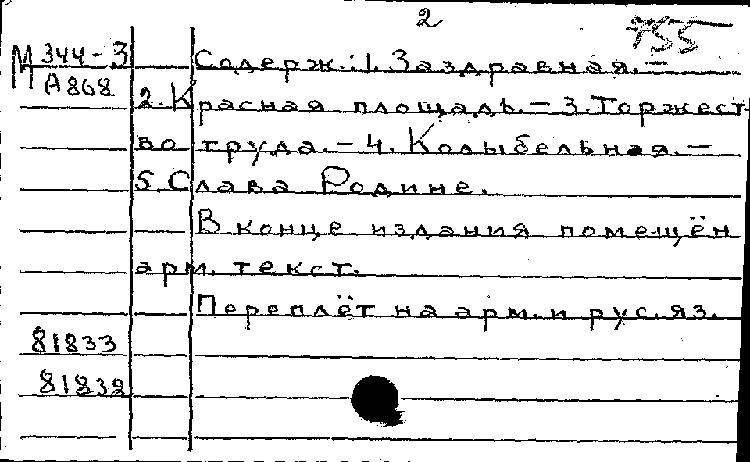 2
755
М 344-3
А868
Содерж.: 1. Заздравная. –
2. Красная площадь. – 3. Торжест-
во труда. – 4. Колыбельная. –
5. Слава Родине.
В конце издания помещён
арм. текст.
Переплёт на арм. и рус. яз.
81833
81832